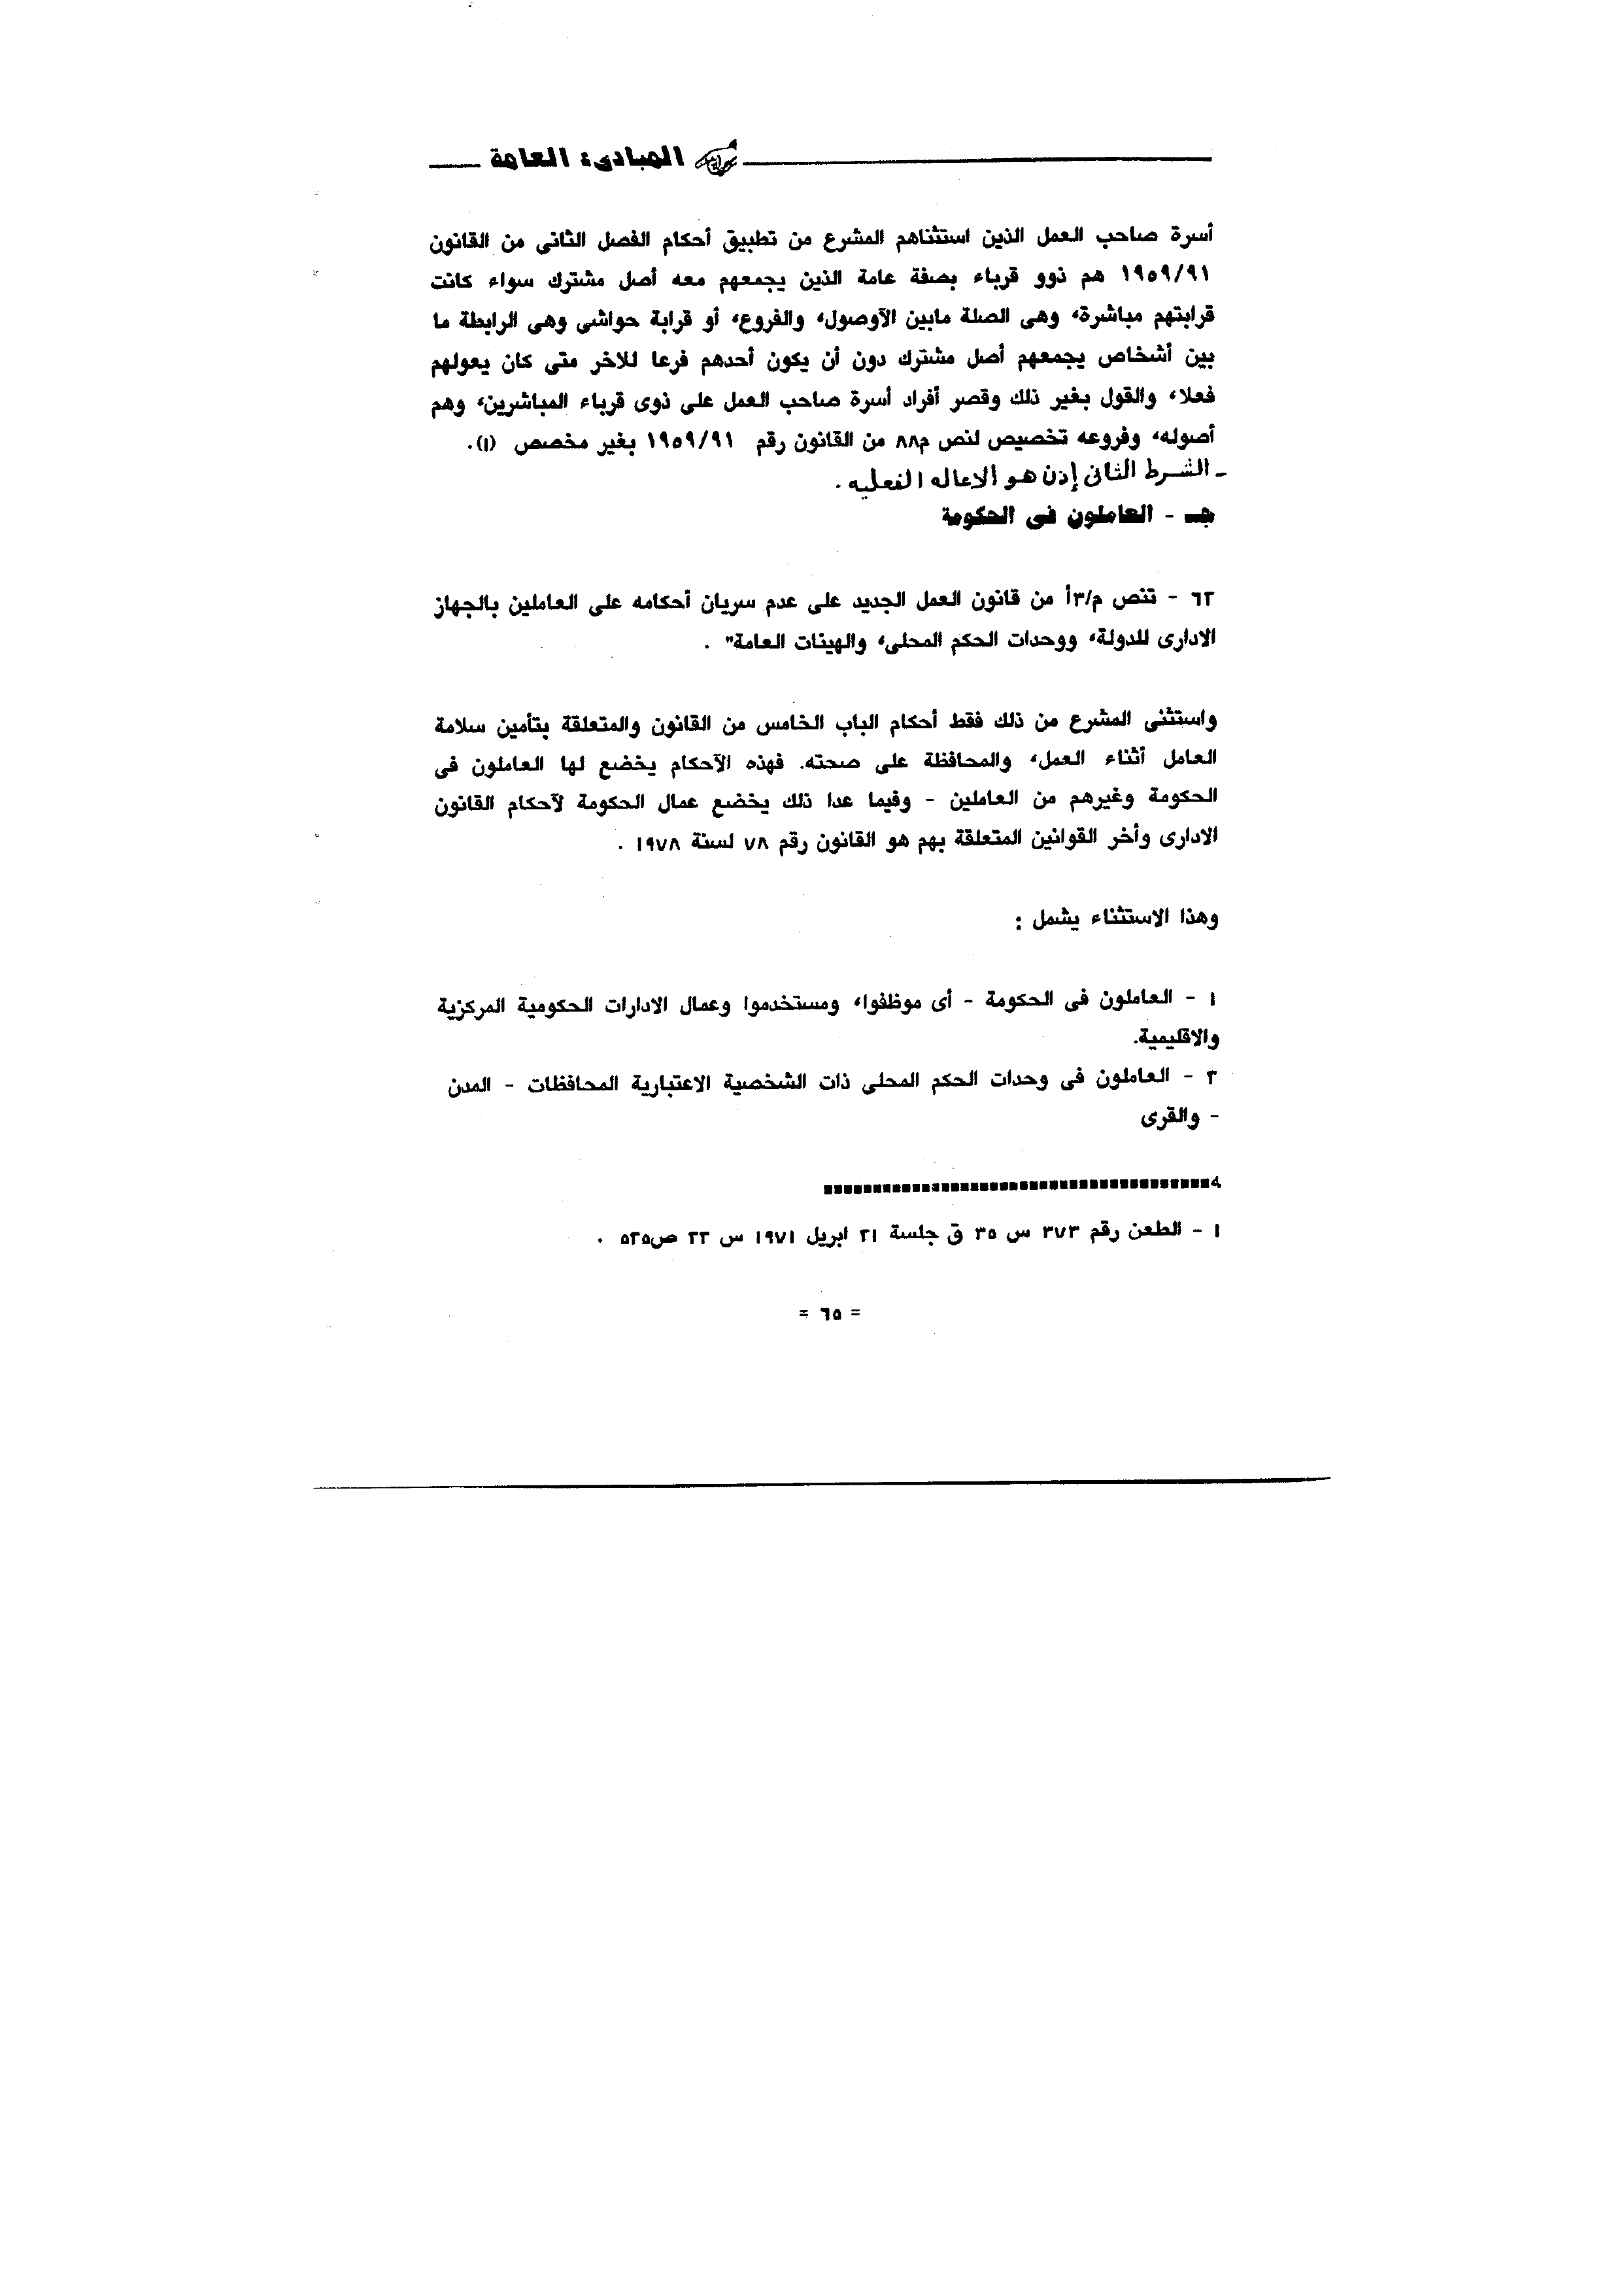 المبادىء العامة
أسرة صاحب العمل الذين استثناهم المشرع من تطبيق أحكام الفصل الثانى من القانون
١٩٥٩/٩١ هم ذوو قرباء بصفة عامة الذين يجمعهم معه أصل مشترك سواء كانت
قرابتهم مباشرة، وهى الصلة مابين الآوصول، والفروع، أو قرابة حواشى وهى الرابطة ما
بين أشخاص يجمعهم أصل مشترك دون أن يكون أحدهم فرعا للاخر متى كان يعولهم
فعلا، والقول بغير ذلك وقصر أفراد أسرة صاحب العمل على ذوى قرباء المباشرين، وهم
أصوله، وفروعه تخصيص لنص م٨٨ من القانون رقم ١٩٥٩/٩١ بغير مخصص (١).
- الشرط الثانى إذن هو الاعاله الفعليه .
جـ - العاملون فى الحكومة
٦٢ - تنص م/٣أ من قانون العمل الجديد على عدم سريان أحكامه على العاملين بالجهاز
الادارى للدولة، ووحدات الحكم المحلى، والهيئات العامة" .
واستثنى المشرع من ذلك فقط أحكام الباب الخامس من القانون والمتعلقة بتأمين سلامة
العامل أثناء العمل، والمحافظة على صحته. فهذه الآحكام يخضع لها العاملون فى
الحكومة وغيرهم من العاملين - وفيما عدا ذلك يخضع عمال الحكومة لآحكام القانون
الادارى وأخر القوانين المتعلقة بهم هو القانون رقم ٧٨ لسنة ١٩٧٨ .
وهذا الاستثناء يشمل :
١ - العاملون فى الحكومة - أى موظفوا، ومستخدموا وعمال الادارات الحكومية المركزية
والاقليمية.
٢ - العاملون فى وحدات الحكم المحلى ذات الشخصية الاعتبارية المحافظات - المدن
- والقرى
١ - الطعن رقم ٣٧٣ س ٣٥ ق جلسة ٢١ ابريل ١٩٧١ س ٢٢ ص٥٢٥ .
= ٦٥ =